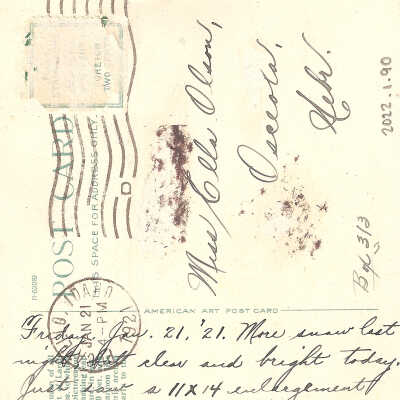 POST CARD
THIS SPACE FOR ADDRESS ONLY
Miss Ella Olson,
Osceola,
Nebr.
Box 313
2022.1.90
AMERICAN ART POST CARD
JAN 21
-PM
1921
D
"Friday, Jan. 21, '21. More snow last
night but clear and bright today.
Just saw a 11x14 enlargement